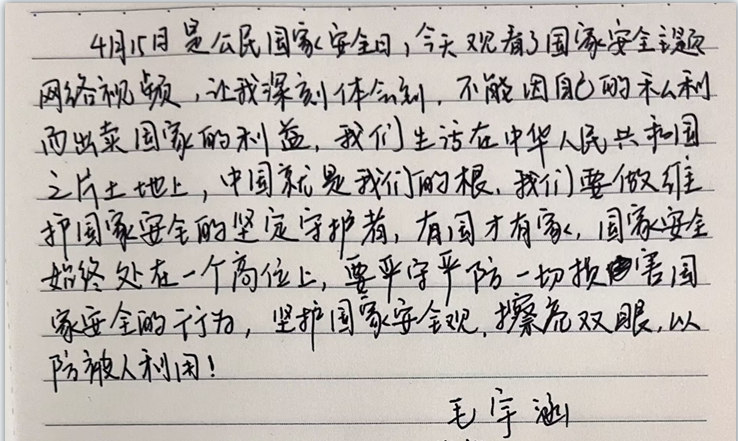 4月15日是公民国家安全日，今天观看了国家安全主题
网络视频，让我深刻体会到，不能因自己的私利
而出卖国家的利益，我们生活在中华人民共和国
之片土地上，中国就是我们的根，我们要做维
护国家安全的坚定守护者，有国才有家，国家安全
始终处在一个高位上，要严守严防一切损害国
家安全的行为，坚护国家安全观，擦亮双眼，以
防被人利用！
毛宇涵